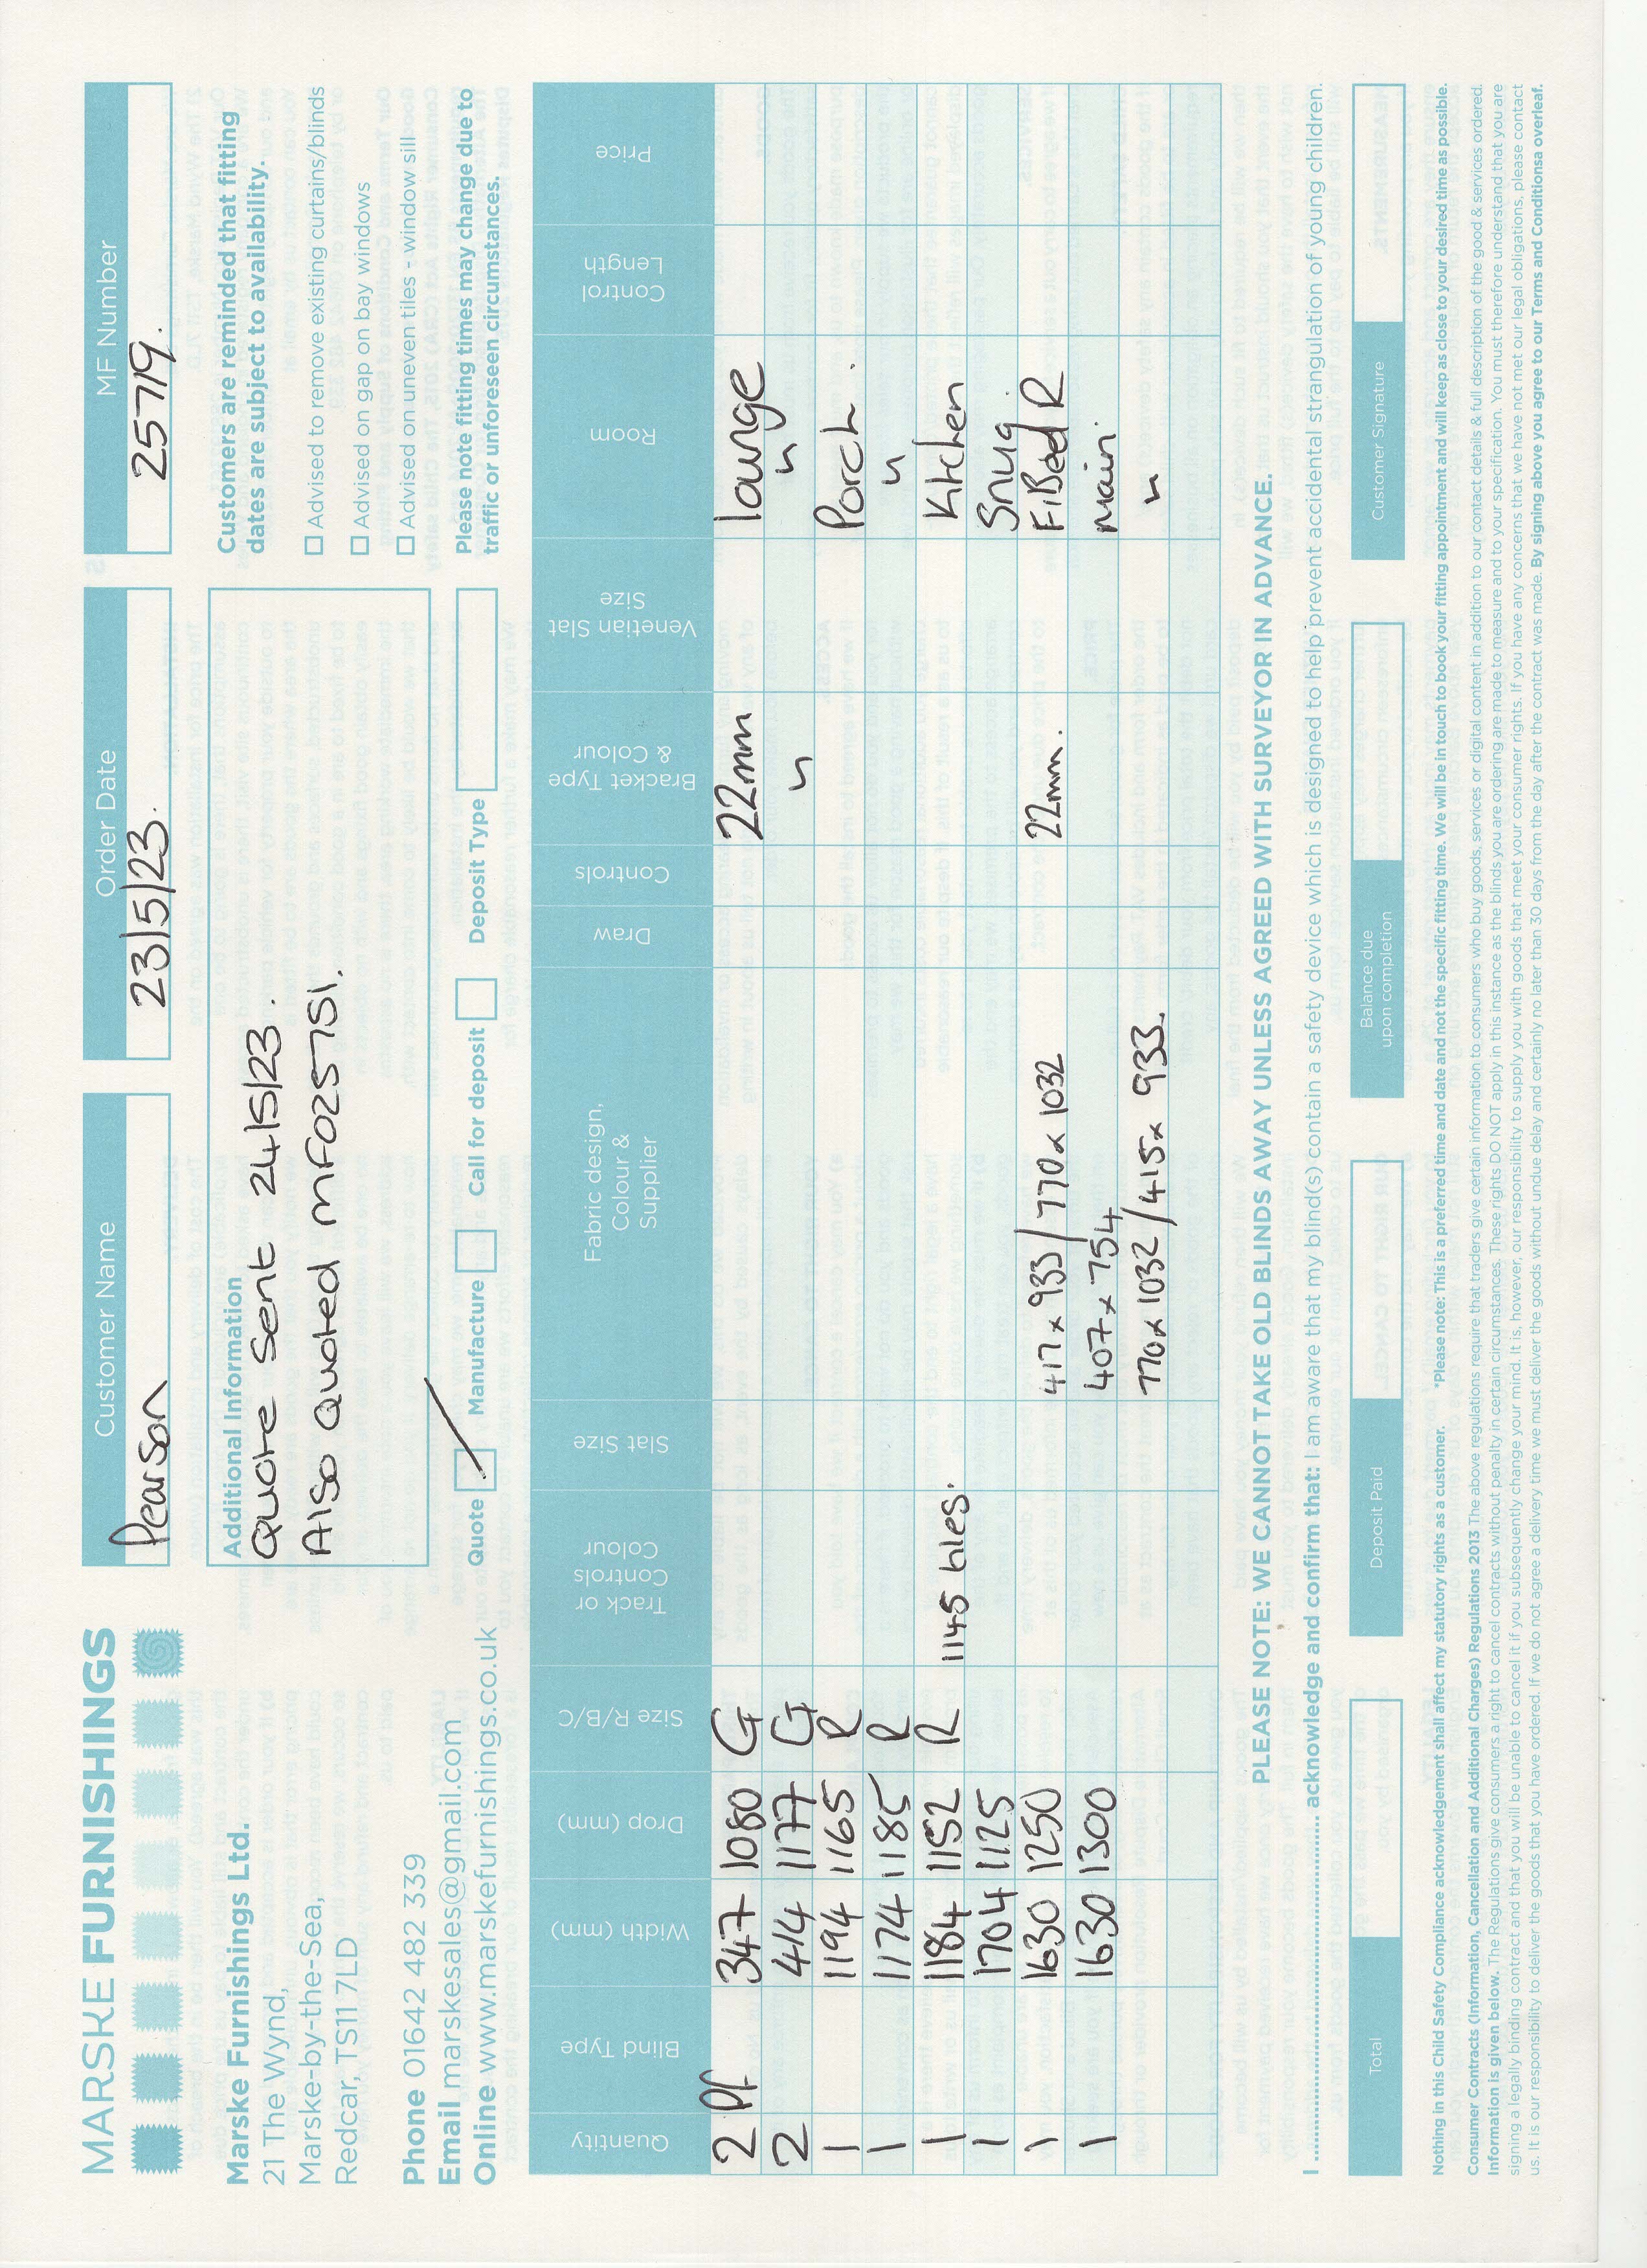 MARSKE FURNISHINGS
Marske Furnishings Ltd.
21 The Wynd,
Marske-by-the-Sea,
Redcar, TS11 7LD
Phone 01642 482 339
Email marskesales@gmail.com
Online www.marskefurnishings.co.uk
Customer Name
Pearson
Order Date
23/5/23.
MF Number
25719.
Additional Information
Quote Sent 24/5/23.
Also Quoted MF025751.
Quote Manufacture Call for deposit Deposit Type
Customers are reminded that fitting
dates are subject to availability.
Advised to remove existing curtains/blinds
Advised on gap on bay windows
Advised on uneven tiles - window sill
Please note fitting times may change due to
traffic or unforeseen circumstances.
Quantity Blind Type Width (mm) Drop (mm) Size R/B/C Track or Controls Colour Slat Size Fabric design, Colour & Supplier Draw Controls Bracket Type & Colour Venetian Slat Size Room Control Length Price
2 Pf 347 1080 G 22mm lounge
2 414 1177 G " "
1 1194 1165 R Porch.
1 1174 1185 R "
1 1184 1152 R 1145 tiles. Kitchen
1 1704 1125 Snug.
1 1630 1250 417x933/770x1032 22mm. F/Bed R
1 1630 1300 407x754 main.
770x1032/415x933. "
PLEASE NOTE: WE CANNOT TAKE OLD BLINDS AWAY UNLESS AGREED WITH SURVEYOR IN ADVANCE.
I .................... acknowledge and confirm that: I am aware that my blind(s) contain a safety device which is designed to help prevent accidental strangulation of young children.
Total
Deposit Paid
Balance due
upon completion
Customer Signature
Nothing in this Child Safety Compliance acknowledgement shall affect my statutory rights as a customer. *Please note: This is a preferred time and date and not the specific fitting time. We will be in touch to book your fitting appointment and will keep as close to your desired time as possible.
Consumer Contracts (Information, Cancellation and Additional Charges) Regulations 2013 The above regulations require that traders give certain information to consumers who buy goods, services or digital content in addition to our contact details & full description of the good & services ordered.
Information is given below. The Regulations give consumers a right to cancel contracts without penalty in certain circumstances. These rights DO NOT apply in this instance as the blinds you are ordering are made to measure and to your specification. You must therefore understand that you are
signing a legally binding contract and that you will be unable to cancel it if you subsequently change your mind. It is, however, our responsibility to supply you with goods that meet your consumer rights. If you have any concerns that we have not met our legal obligations, please contact
us. It is our responsibility to deliver the goods that you have ordered. If we do not agree a delivery time we must deliver the goods without undue delay and certainly no later than 30 days from the day after the contract was made. By signing above you agree to our Terms and Conditionsa overleaf.